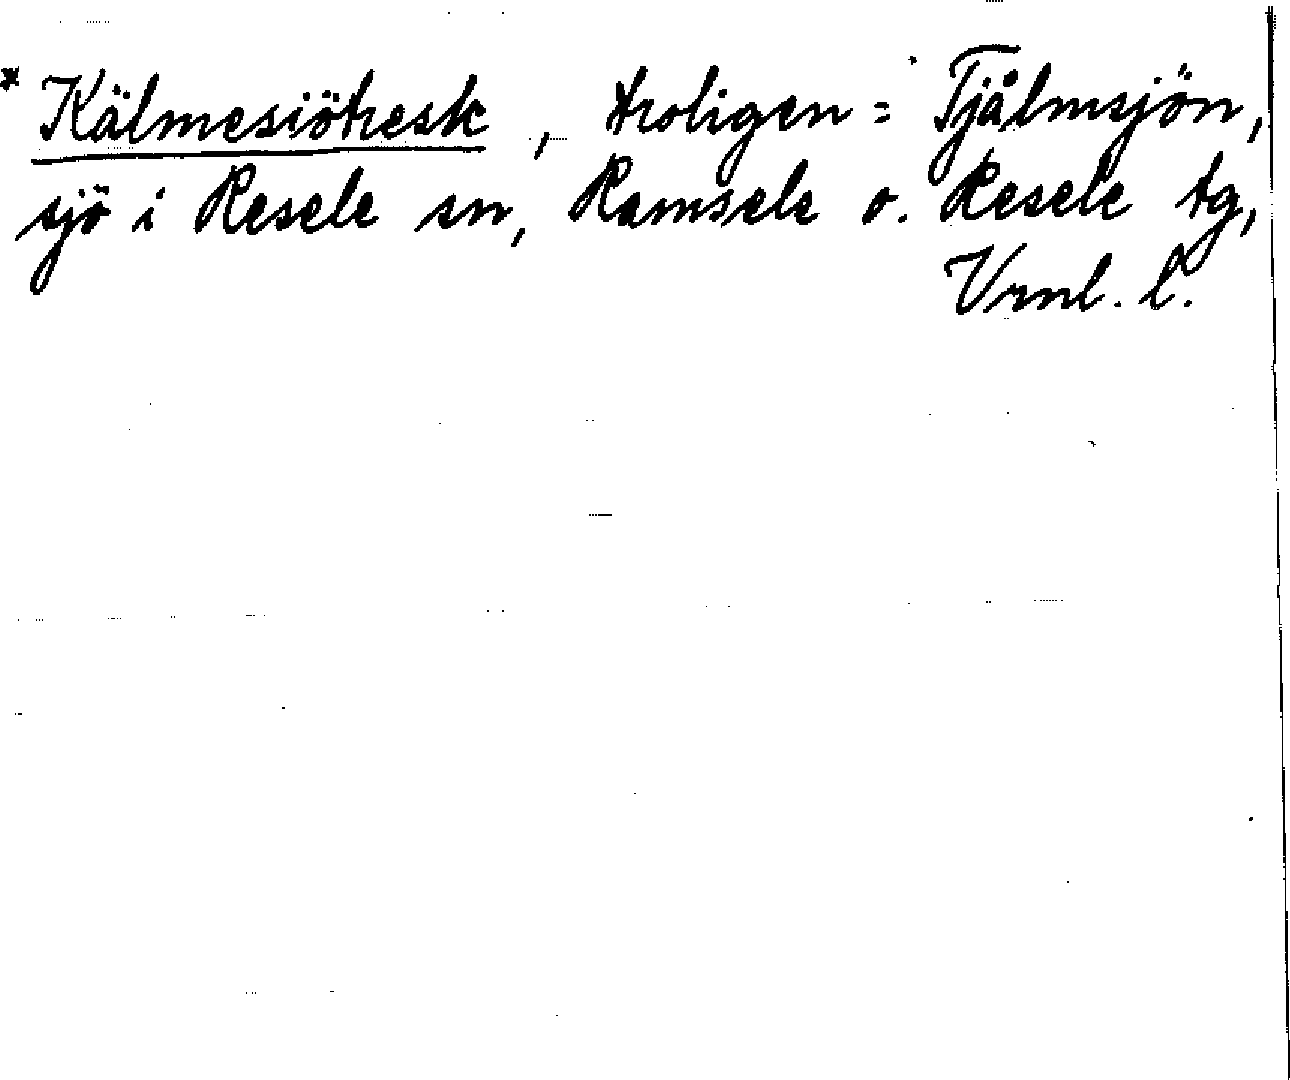 * Kälmesiöträsk, troligen = Tjålmsjön,
sjö i Resele sn, Ramsele o. Resele tg,
Vrnl. l.